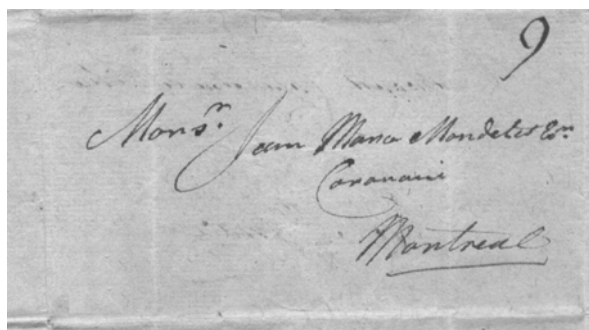 9
Monsr. Jean Marie Mondelet Ecr.
Coronaire
Montreal